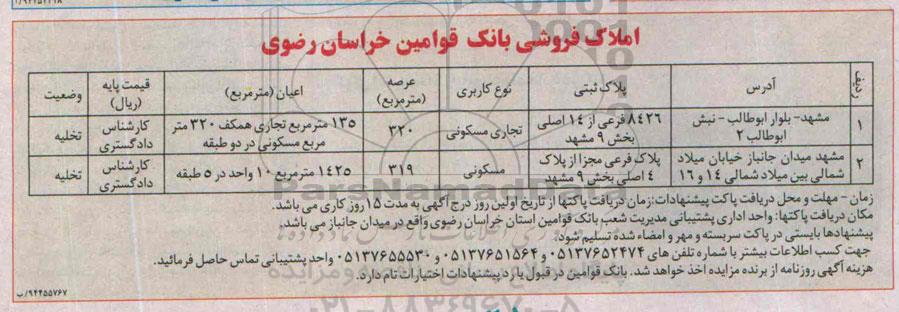 املاک فروشی بانک قوامین خراسان رضوی
ردیف آدرس پلاک ثبتی نوع کاربری عرصه (مترمربع) اعیان (مترمربع) قیمت پایه (ریال) وضعیت
۱ مشهد- بلوار ابوطالب - نبش ابوطالب ۲ ۸۴۲۶ فرعی از ۱۴ اصلی بخش ۹ مشهد تجاری مسکونی ۳۲۰ ۱۳۵ مترمربع تجاری همکف ۳۲۰ متر مربع مسکونی در دو طبقه کارشناس دادگستری تخلیه
۲ مشهد میدان جانباز خیابان میلاد شمالی بین میلاد شمالی ۱۴ و ۱۶ پلاک فرعی مجزا از پلاک ۴ اصلی بخش ۹ مشهد مسکونی ۳۱۹ ۱۴۲۵ مترمربع ۱۰ واحد در ۵ طبقه کارشناس دادگستری تخلیه
زمان - مهلت و محل دریافت پاکت پیشنهادات:زمان دریافت پاکتها از تاریخ اولین روز درج آگهی به مدت ۱۵روز کاری می باشد.
مکان دریافت پاکتها: واحد اداری پشتیبانی مدیریت شعب بانک قوامین استان خراسان رضوی واقع در میدان جانباز می باشد.
پیشنهادها بایستی در پاکت سربسته و مهر و امضاء شده تسلیم شود.
جهت کسب اطلاعات بیشتر با شماره تلفن های ۰۵۱۳۷۶۵۲۴۷۴ و ۰۵۱۳۷۶۵۱۵۶۴ و ۰۵۱۳۷۶۵۵۵۳۰ واحد پشتیبانی تماس حاصل فرمائید.
هزینه آگهی روزنامه از برنده مزایده اخذ خواهد شد. بانک قوامین در قبول یا رد پیشنهادات اختیارات تام دارد.
۹۴۴۵۵۷۶۷/ب
ParsNamadData
۰۲۱-۸۸۳۴۹۶۷۰-۵